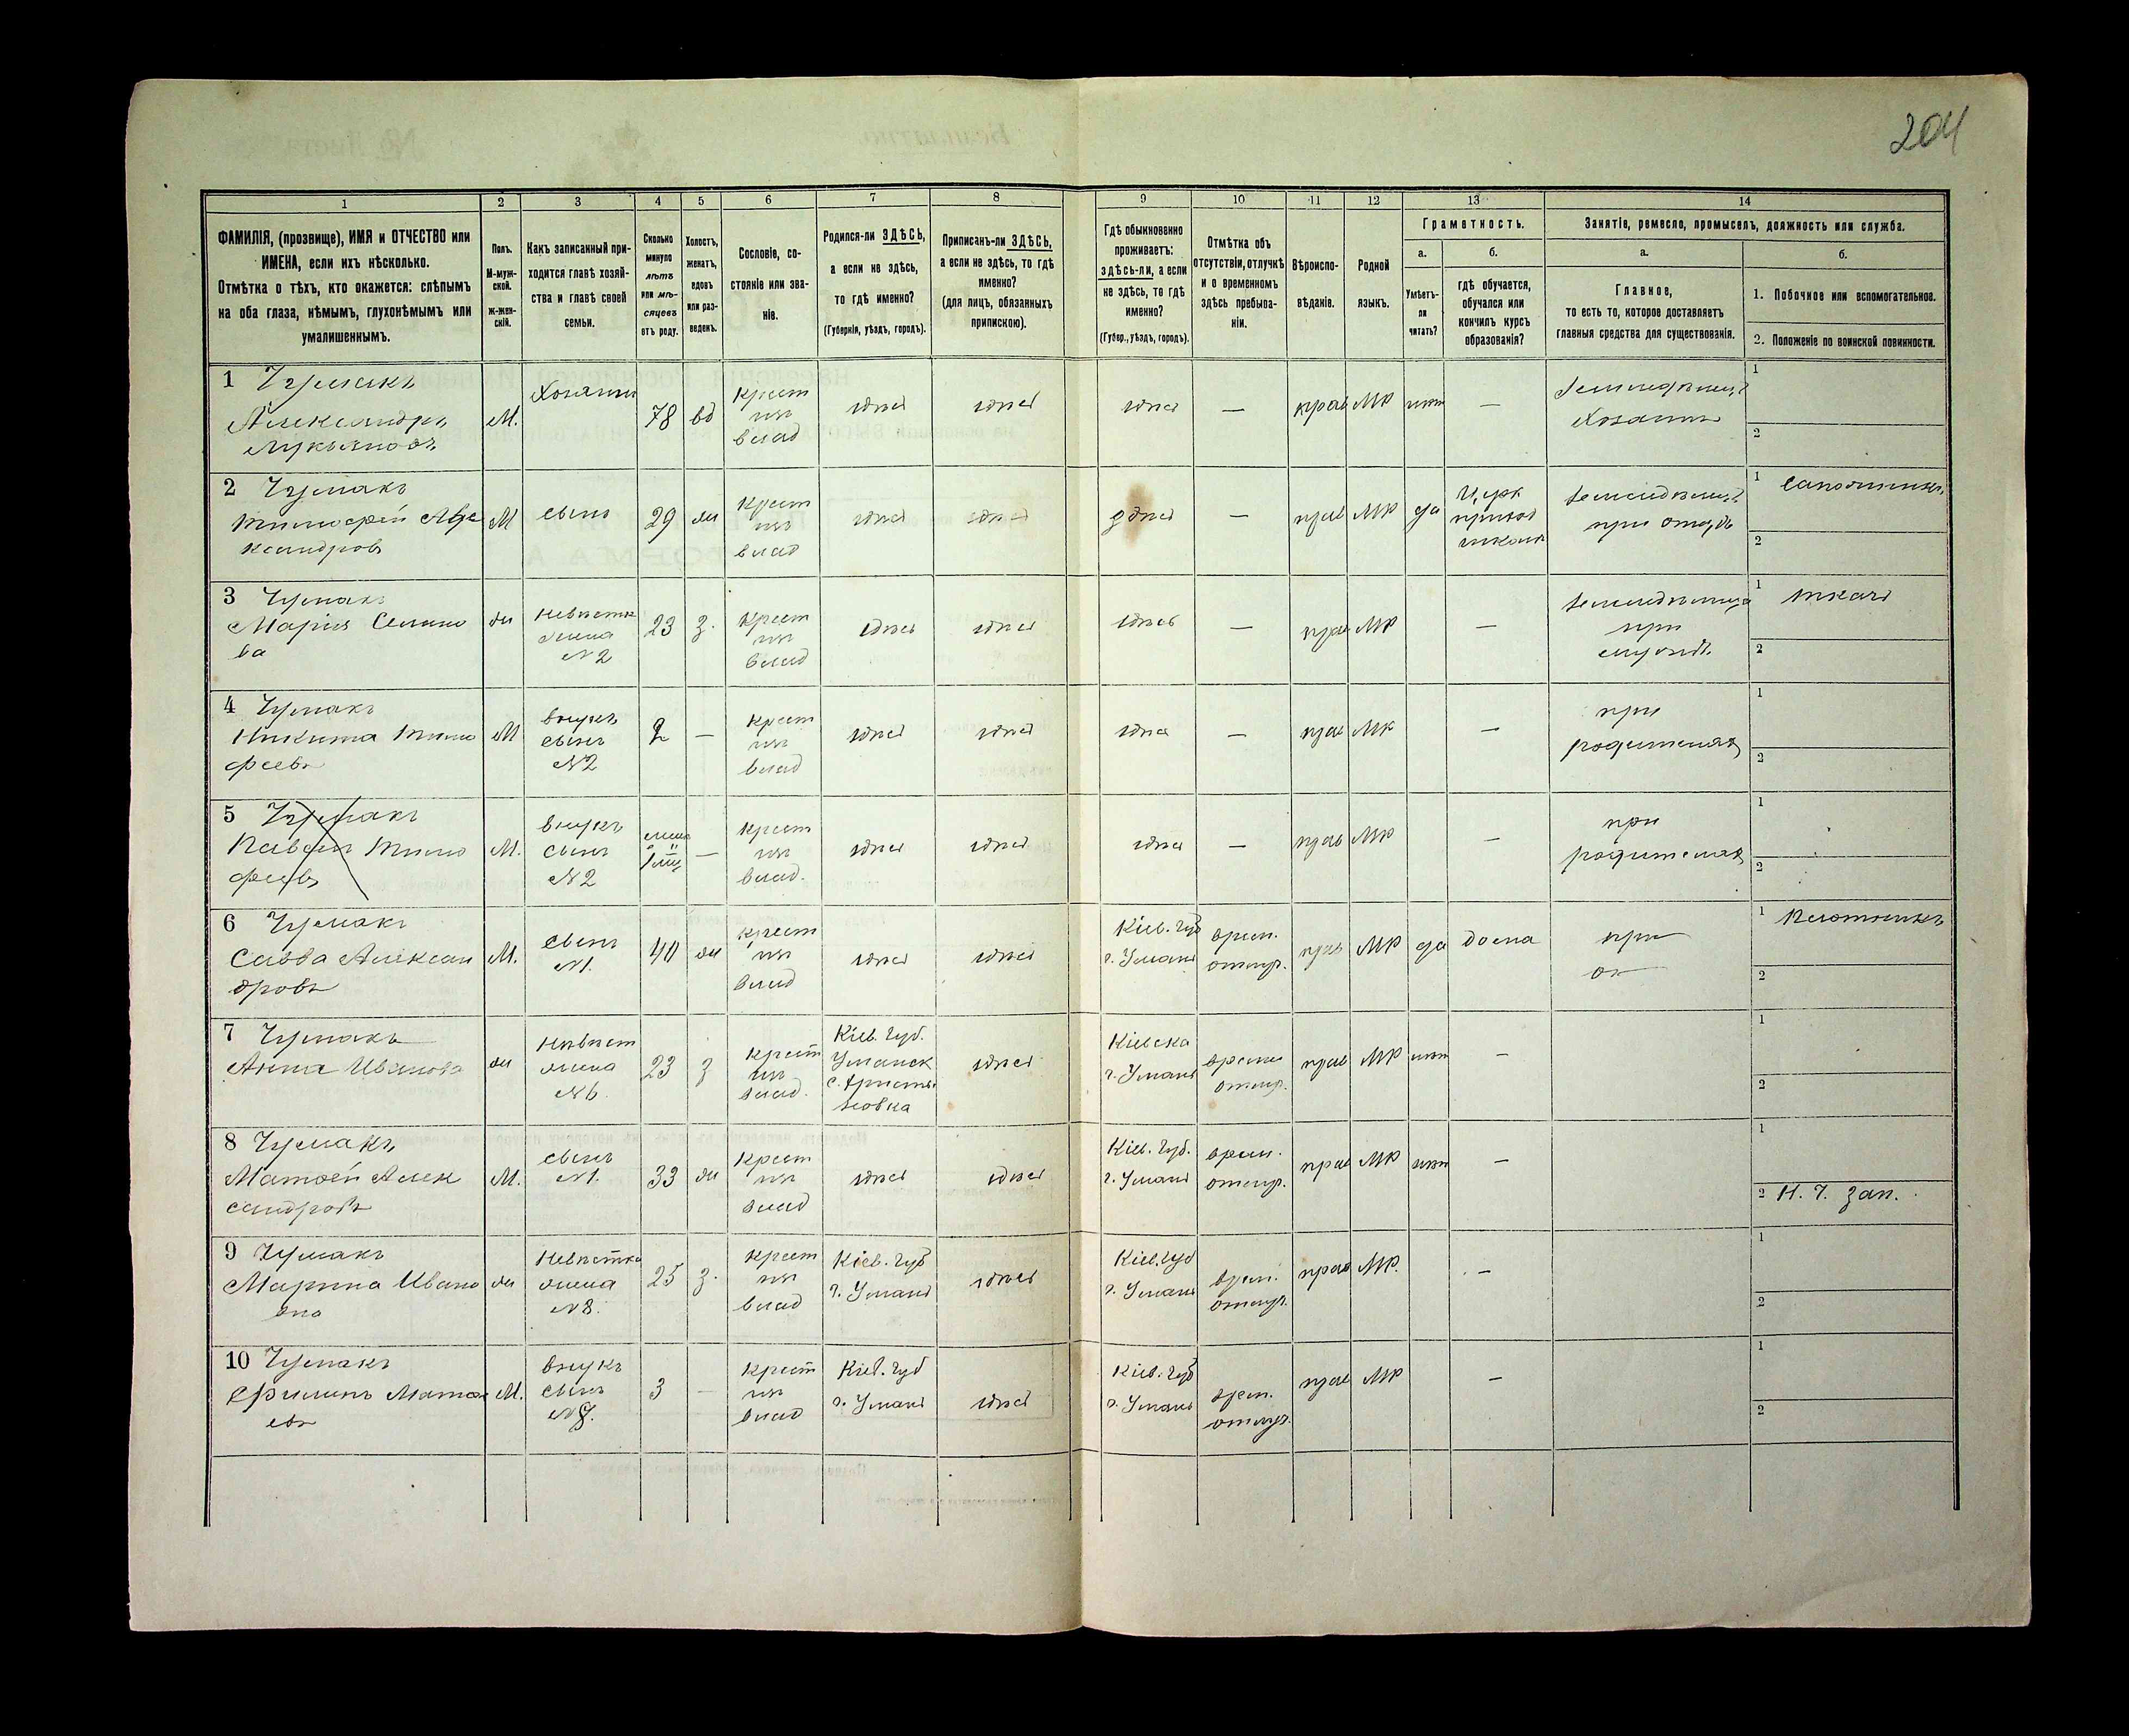 204
1
2
3
4
5
6
7
8
9
10
11
12
13
14
ФАМИЛІЯ, (прозвище), ИМЯ и ОТЧЕСТВО или
ИМЕНА, если ихъ нѣсколько.
Отмѣтка о тѣхъ, кто окажется: слѣпымъ
на оба глаза, нѣмымъ, глухонѣмымъ или
умалишеннымъ.
Полъ.
М-муж-
ской.
ж-жен-
скій.
Какъ записанный при-
ходится главѣ хозяй-
ства и главѣ своей
семьи.
Сколько
минуло
лѣтъ
или мѣ-
сяцевъ
отъ роду.
Холостъ,
женатъ,
вдовъ
или раз-
веденъ.
Сословіе, со-
стояніе или зва-
ніе.
Родился-ли ЗДѢСЬ,
а если не здѣсь,
то гдѣ именно?
(Губернія, уѣздъ, городъ).
Приписанъ-ли ЗДѢСЬ,
а если не здѣсь, то гдѣ
именно?
(для лицъ, обязанныхъ
припискою).
Гдѣ обыкновенно
проживаетъ:
здѣсь-ли, а если
не здѣсь, то гдѣ
именно?
(Губер., уѣздъ, городъ).
Отмѣтка объ
отсутствіи, отлучкѣ
и о временномъ
здѣсь пребыва-
ніи.
Вѣроиспо-
вѣданіе.
Родной
языкъ.
Грамотность.
а.
Умѣетъ-
ли
читать?
б.
гдѣ обучается,
обучался или
кончилъ курсъ
образованія?
Занятіе, ремесло, промыселъ, должность или служба.
а.
Главное,
то есть то, которое доставляетъ
главныя средства для существованія.
б.
1. Побочное или вспомогательное.
2. Положеніе по воинской повинности.
1 Чумакъ
Александръ
Лукьяновъ
М.
Хозяинъ
78
вд
крест
из
влад
здѣсь
здѣсь
здѣсь
—
прав
МР
нѣт
—
Хозяинъ
1
2
2 Чумакъ
Тимофей Але
ксандровъ
М
сынъ
29
ж
крест
из
влад
здѣсь
здѣсь
здѣсь
—
прав
МР
да
Церк
приход
школа
при отцѣ
1 Сапожникъ
2
3 Чумакъ
Марія Семено
ва
ж
невѣстка
жена
№2
23
з.
крест
из
влад
здѣсь
здѣсь
здѣсь
—
прав
МР
—
при
мужѣ
1 ткачь
2
4 Чумакъ
Никита Тимо
феевъ
М
внукъ
сынъ
№2
2
—
крест
из
влад
здѣсь
здѣсь
здѣсь
—
прав
МР
—
при
родителях
1
2
5 Чумакъ
Павелъ Тимо
феевъ
М.
внукъ
сынъ
№2
—
крест
из
влад.
здѣсь
здѣсь
здѣсь
—
прав
МР
—
при
родителях
1
2
6 Чумакъ
Савва Алексан
дровъ
М.
сынъ
№1.
40
ж
крест
из
влад
здѣсь
здѣсь
Кіев. губ
г. Умань
врем.
отлуч.
прав
МР
да
дома
1 Плотникъ
2
7 Чумакъ
Анна Иванова
ж
невѣст
жена
№6
23
з
крест
из
влад.
Кіев. губ.
Уманск
здѣсь
Кіевска
г. Умань
времен
отлуч.
прав
МР
нѣт
—
1
2
8 Чумакъ
Матвей Алек
сандровъ
М.
сынъ
№1.
33
ж
крест
из
влад
здѣсь
здѣсь
Кіев. губ.
г. Умань
врем.
отлуч.
прав
МР
нѣт
—
1
2 Н. Ч. зап.
9 Чумакъ
Марина Ивано
вна
ж
Невѣстка
жена
№8.
25
з.
крест
из
влад
Кіев. губ
г. Умань
здѣсь
Кіев. губ
г. Умань
врем.
отлуч.
прав
МР.
—
1
2
10 Чумакъ
Филипъ Матвѣ
евъ
М.
внукъ
сынъ
№8.
3
—
крест
из
влад
Кіев. губ
г. Умань
здѣсь
Кіев. губ
г. Умань
врем.
отлуч.
прав
МР
—
1
2